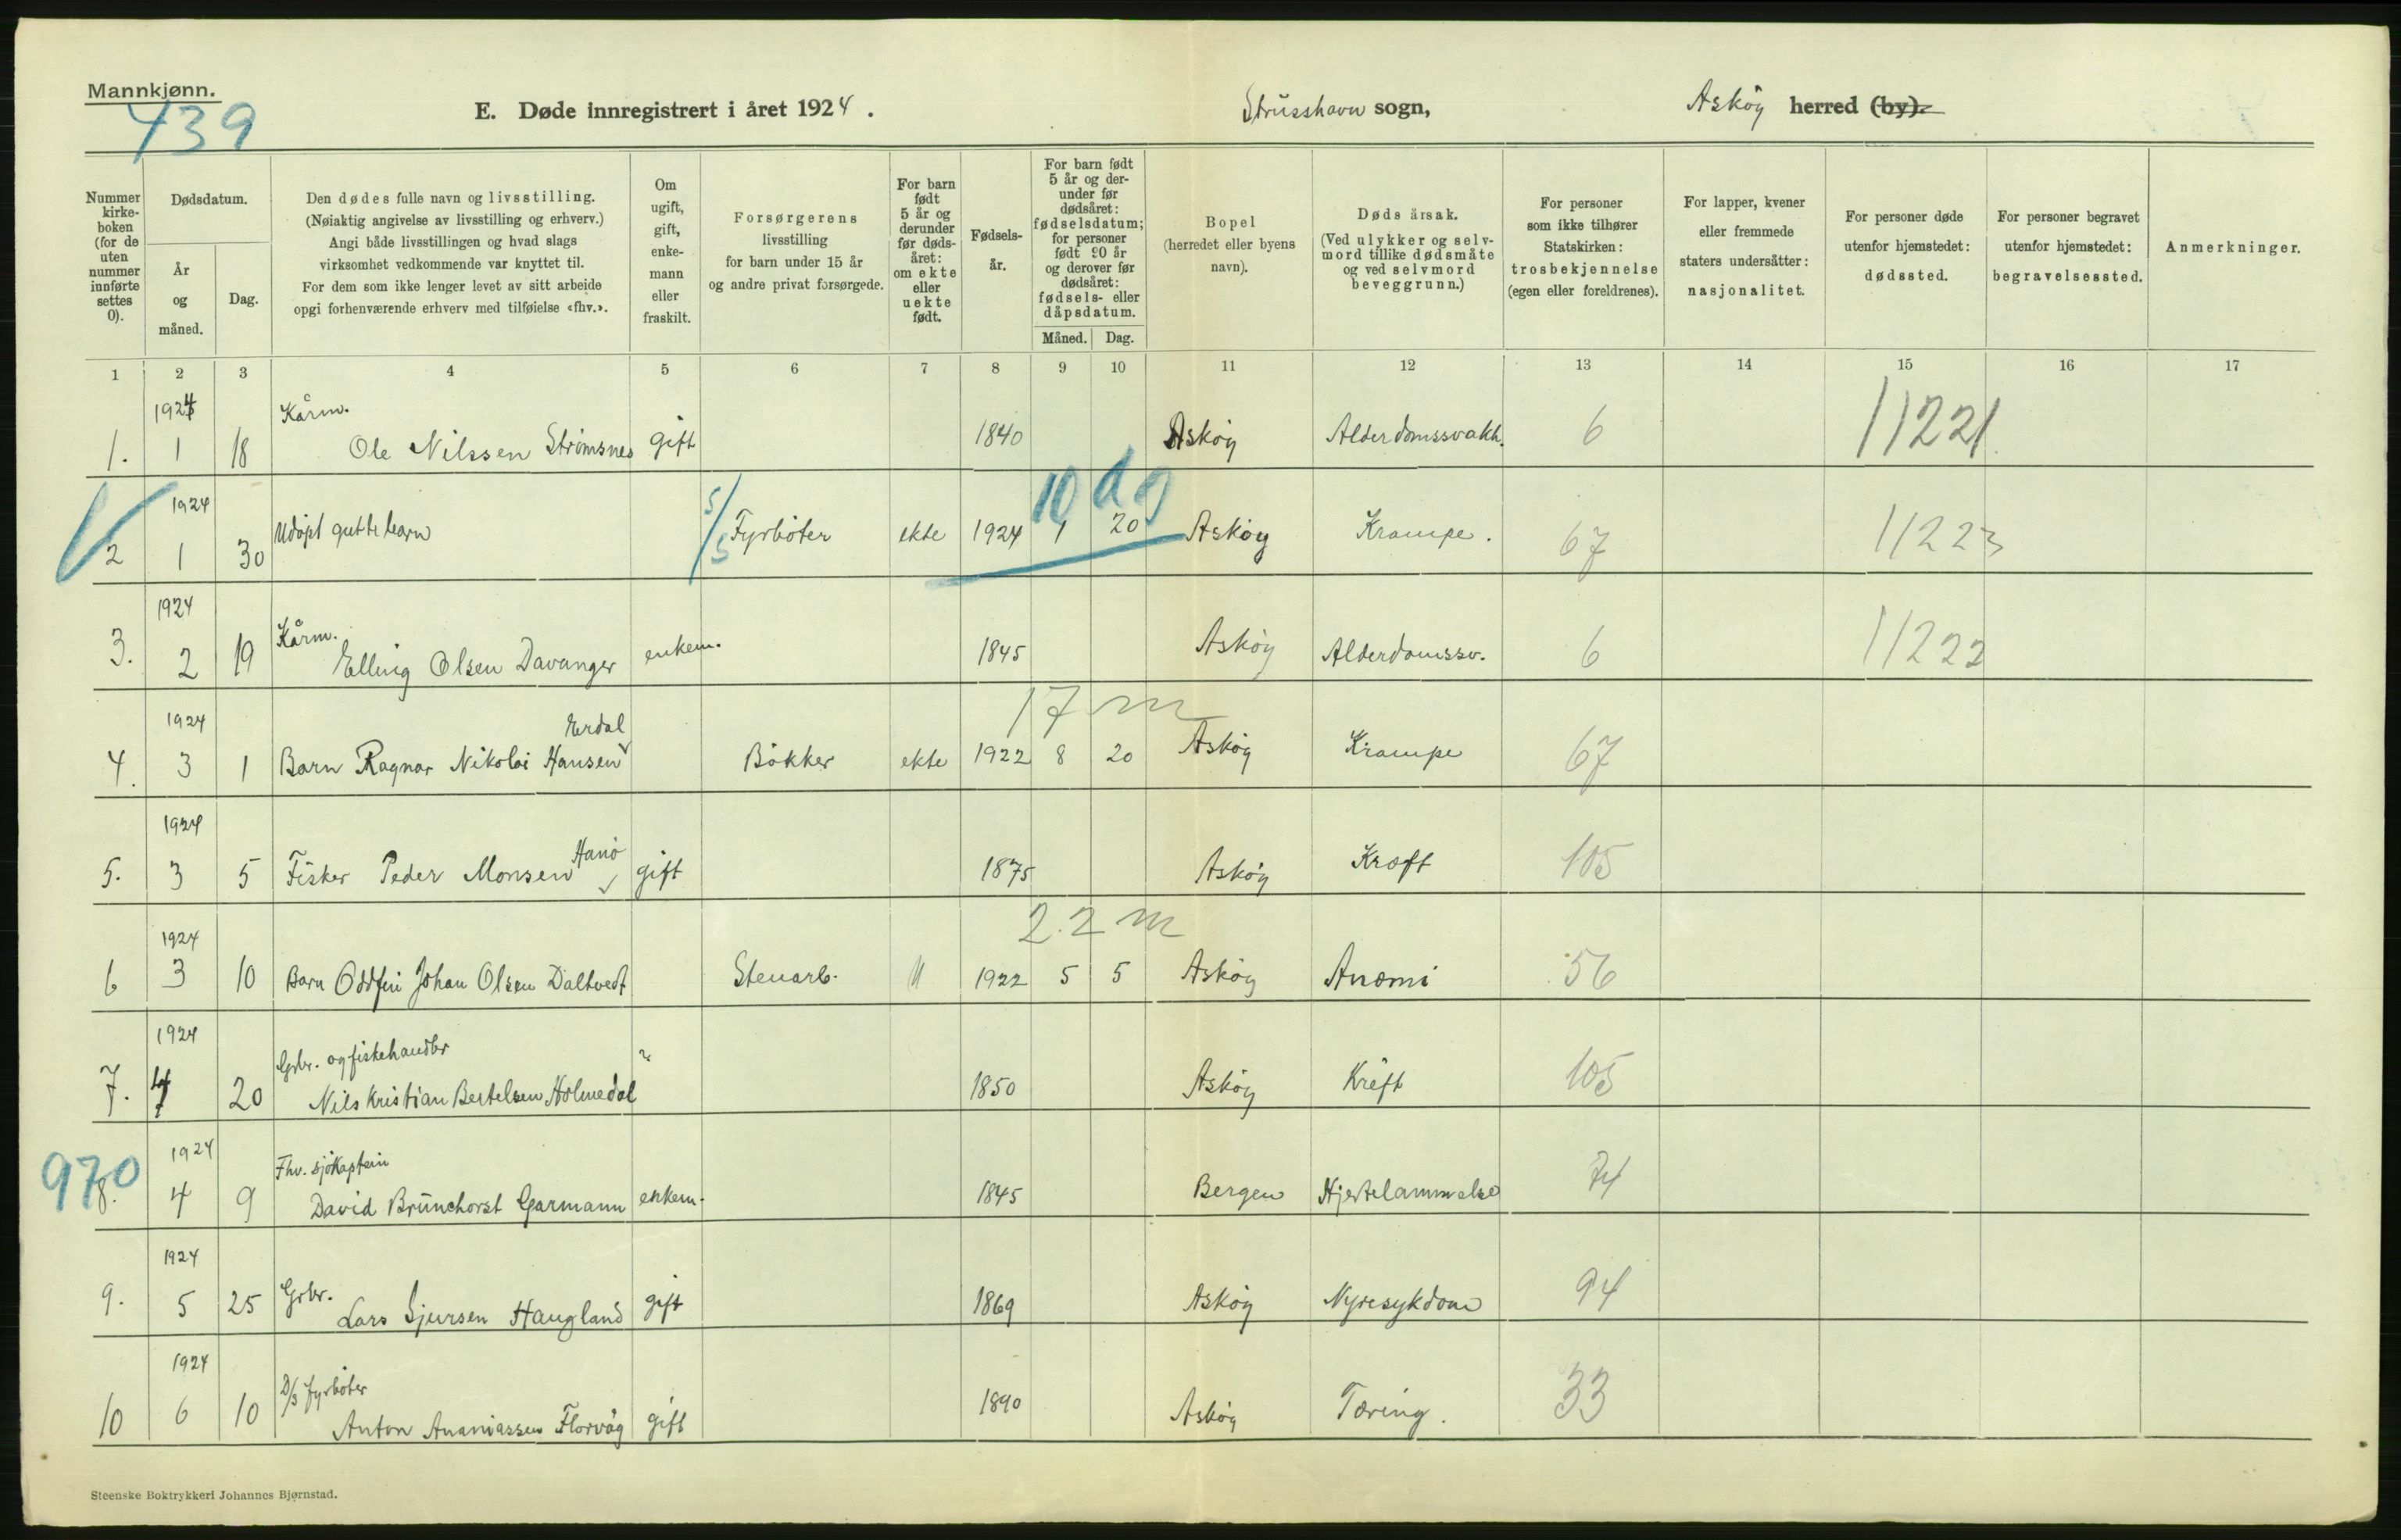 Mannkjønn.
439
E. Døde innregistrert i året 1924.
Strusshavn sogn,
Askøy herred (by).
Nummer kirke-boken (for de uten nummer innførte settes 0).
Dødsdatum.
År og måned.
Dag.
Den dødes fulle navn og livsstilling.
(Nøiaktig angivelse av livsstilling og erhverv.)
Angi både livsstillingen og hvad slags
virksomhet vedkommende var knyttet til.
For dem som ikke lenger levet av sitt arbeide
opgi forhenværende erhverv med tilføielse «fhv.».
Om ugift, gift, enke-mann eller fraskilt.
Forsørgerens livsstilling for barn under 15 år og andre privat forsørgede.
For barn født 5 år og derunder før døds-året: om ekte eller uekte født.
Fødsels-år.
For barn født 5 år og der-under før dødsåret: fødselsdatum; for personer født 90 år og derover før dødsåret: fødsels- eller dåpsdatum.
Måned. Dag.
Bopel (herredet eller byens navn).
Døds årsak.
(Ved ulykker og selv-mord tillike dødsmåte og ved selvmord beveggrunn.)
For personer som ikke tilhører Statskirken: trosbekjennelse (egen eller foreldrenes).
For lapper, kvener eller fremmede staters undersåtter: nasjonalitet.
For personer døde utenfor hjemstedet: dødssted.
For personer begravet utenfor hjemstedet: begravelsessted.
Anmerkninger.
1 2 3 4 5 6 7 8 9 10 11 12 13 14 15 16 17
1924 Kårm.
1. 1 18 Ole Nilssen Strømsnes gift 1840 Askøy Alderdomssvakh. 6 11221
1924 5/5 10 dg
2 1 30 Udøpt guttebarn Fyrbøter ekte 1924 1 20 Askøy Krampe. 67 11223
1924 Kårm.
3. 2 19 Elling Olsen Davanger enkem. 1845 Askøy Alderdomssv. 6 11222
1924 Erdal 17 m
4. 3 1 Barn Ragnar Nikolai Hansen Bøkker ekte 1922 8 20 Askøy Krampe 67
1924 Hanø
5. 3 5 Fisker Peder Monsen gift 1875 Askøy Kræft 105
1924 22 m
6 3 10 Barn Oddfin Johan Olsen Daltvedt Stenarb. " 1922 5 5 Askøy Anæmi 56
1924 Grbr. og fiskehandler
7. 4 20 Nils Kristian Bertelsen Holmedal " 1850 Askøy Kreft 105
970 1924 Fhv. sjøkaptein
8. 4 9 David Brunchorst Garmann enkem. 1845 Bergen Hjertelammelse 74
1924 Grbr.
9. 5 25 Lars Sjursen Haugland gift 1869 Askøy Nyresykdom 94
1924 D/S fyrbøter
10 6 10 Anton Ananiassen Florvåg gift 1890 Askøy Tæring. 33
Steenske Boktrykkeri Johannes Bjørnstad.